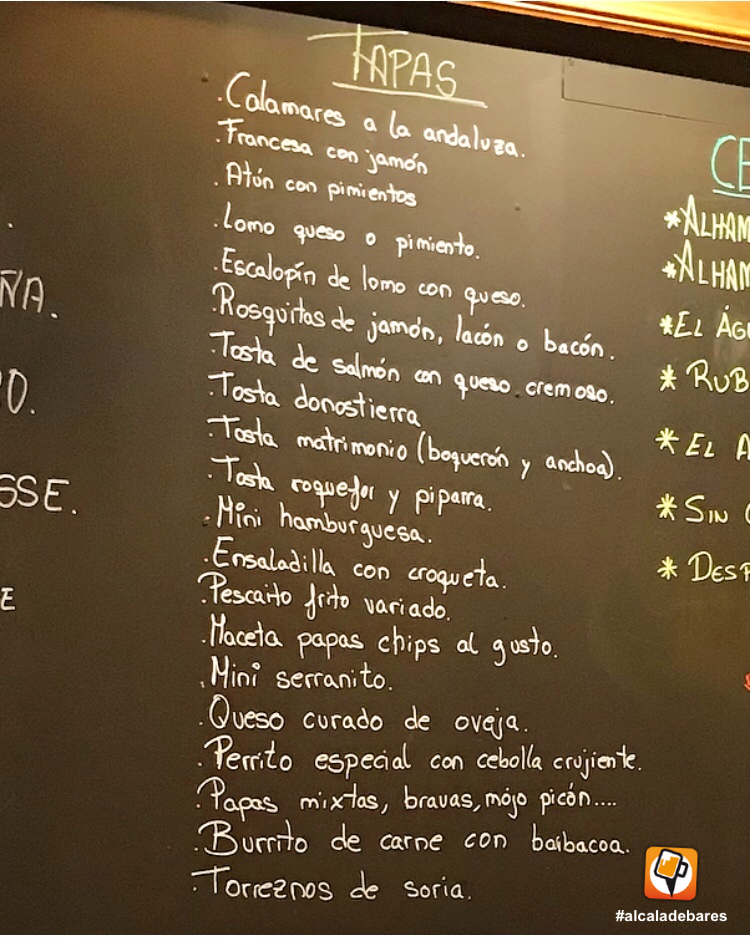 TAPAS
.Calamares a la andaluza.
.Francesa con jamón
.Atún con pimientos
.Lomo queso o pimiento.
.Escalopín de lomo con queso.
.Rosquitas de jamón, lacón o bacón.
.Tosta de salmón con queso cremoso.
.Tosta donostierra
.Tosta matrimonio (boquerón y anchoa).
.Tosta roquefor y piparra.
.Mini hamburguesa.
.Ensaladilla con croqueta.
.Pescaito frito variado.
.Maceta papas chips al gusto.
.Mini serranito.
.Queso curado de oveja.
.Perrito especial con cebolla crujiente.
.Papas mixtas, bravas, mojo picón....
.Burrito de carne con barbacoa.
.Torreznos de soria.
ÑA.
O.
SSE.
E
CE
*ALHAM
*ALHAM
*EL ÁGU
* RUB
* EL A
* SIN
* DESP
#alcaladebares